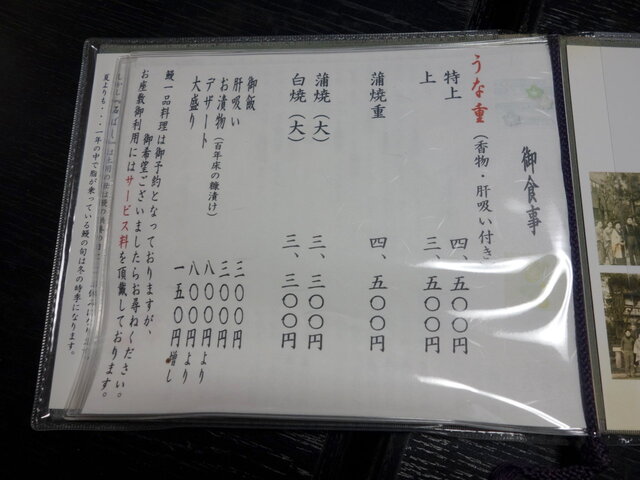 御食事
うな重（香物・肝吸い付き）
特上　四、五〇〇円
上　三、五〇〇円
蒲焼重　四、五〇〇円
蒲焼（大）　三、三〇〇円
白焼（大）　三、三〇〇円
御飯　三〇〇円
肝吸い　三〇〇円
お漬物（百年床の糠漬け）　八〇〇円より
デザート　八〇〇円より
大盛り　一五〇円増し
鰻一品料理は御予約となっておりますが、
御希望ございましたらお尋ねください。
お座敷御利用にはサービス料を頂戴しております。
夏よりも・・・一年の中で脂が乗っている鰻の旬は冬の時季になります。